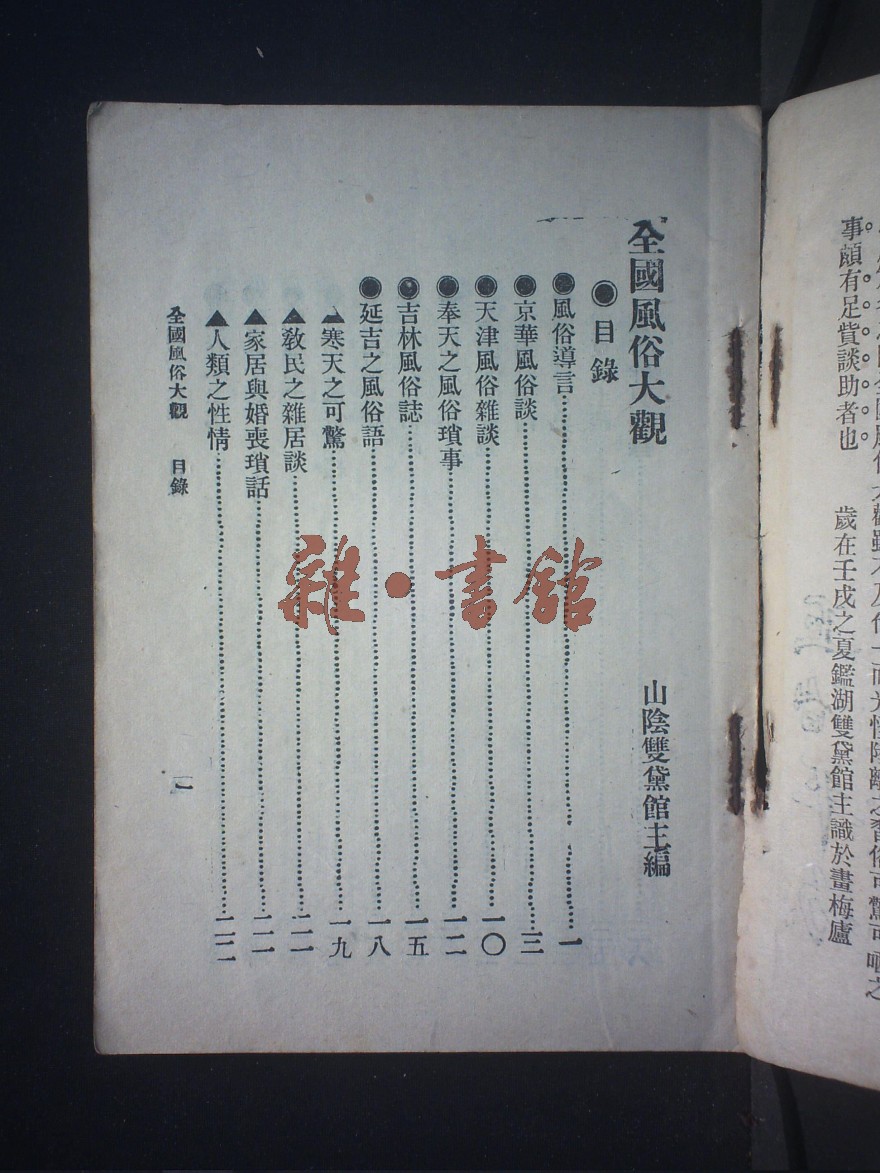 全國風俗大觀雖不及什一而光怪陸離之習俗可驚可
事頗有足貲談助者也 歲在壬戌之夏鑑湖雙黛館主識於畫梅廬
全國風俗大觀 山陰雙黛館主編
●目錄
●風俗導言…一
●京華風俗談…三
●天津風俗雜談…一〇
●奉天之風俗瑣事…一二
●吉林風俗誌…一五
●延吉之風俗語…一八
▲寒天之可驚…一九
▲敎民之雜居談…二一
▲家居與婚喪瑣話…二一
▲人類之性情…二二
全國風俗大觀 目錄 一
雜·書館